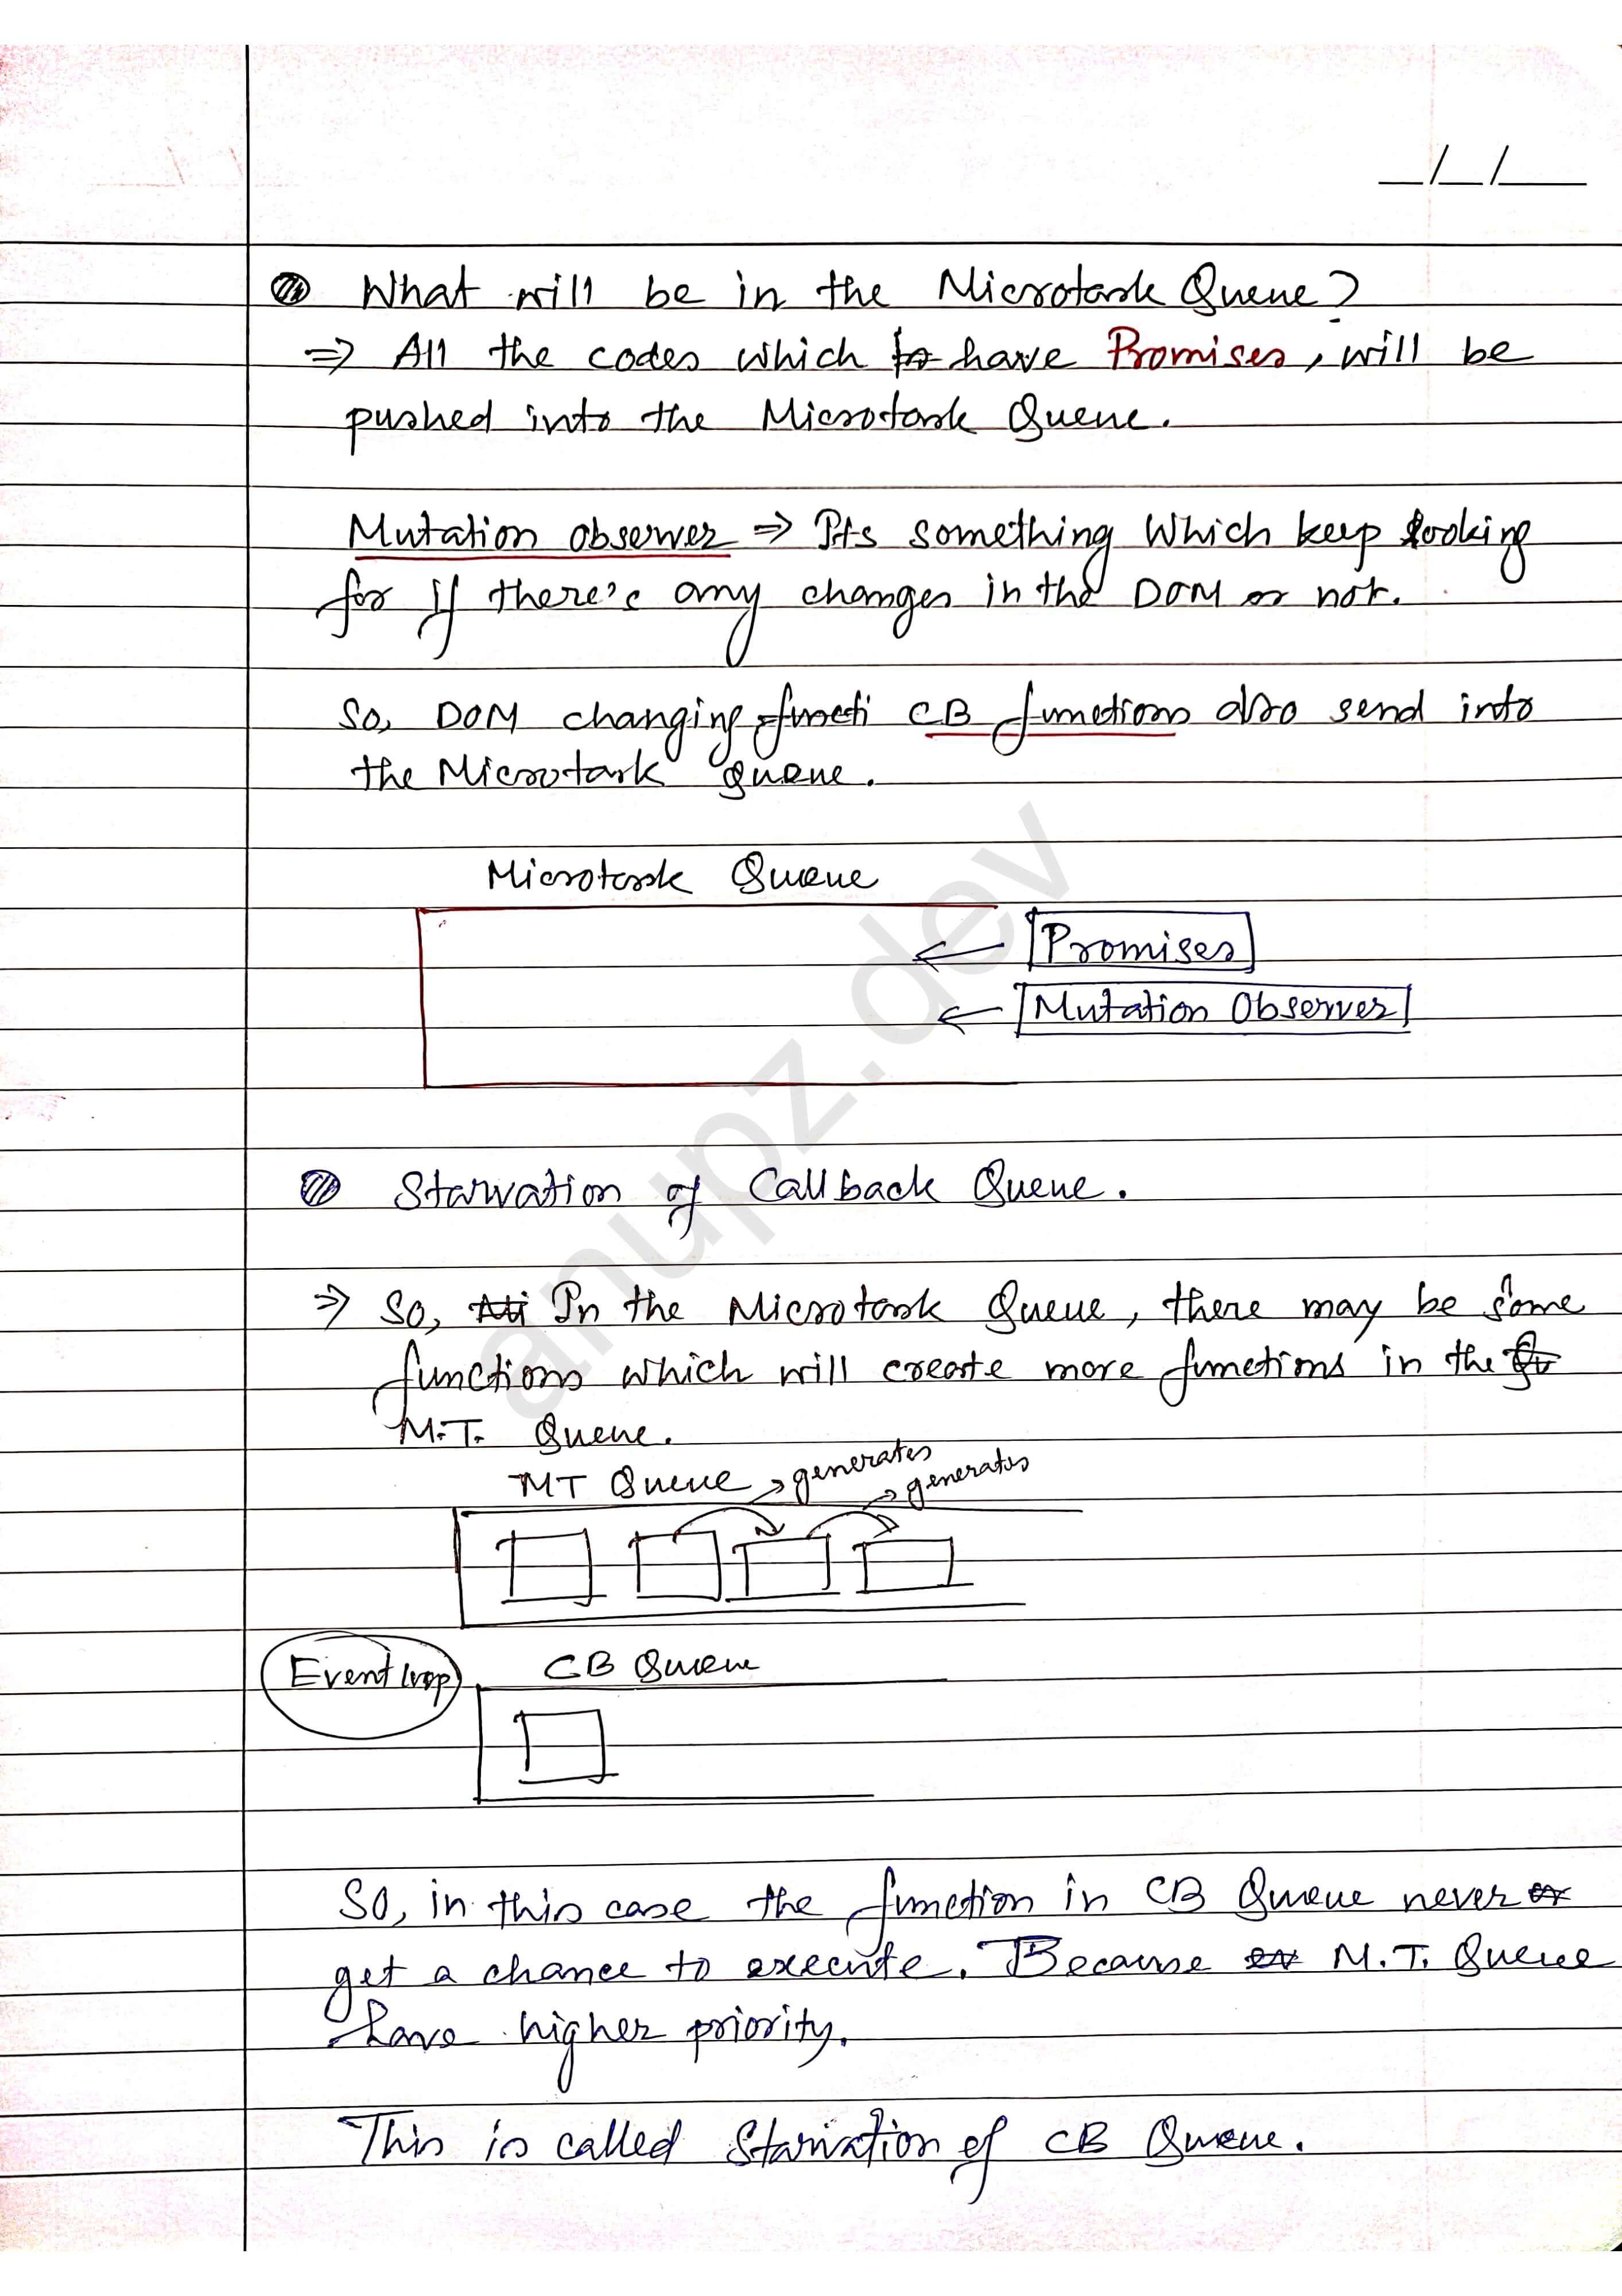 _/_/__
What will be in the Microtask Queue?
⇒ All the codes which have Promises, will be
pushed into the Microtask Queue.
Mutation observer ⇒ Its something Which keep looking
for if there's any changes in the DOM or not.
So, DOM changing functi CB functions also send into
the Microtask queue.
Microtask Queue
← Promises
← Mutation Observer
Starvation of Callback Queue.
⇒ So, In the Microtask Queue, there may be some
functions which will create more functions in the
M.T. Queue.
MT Queue → generates
→ generates
Event loop
CB Queue
So, in this case the function in CB Queue never
get a chance to execute. Because M.T. Queue
have higher priority.
This is called Starvation of CB Queue.
anupz.dev